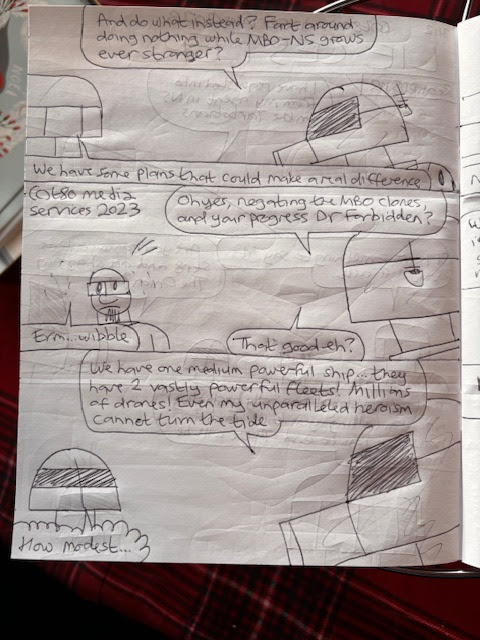 And do what instead? Fart around
doing nothing while MBO-NS grows
ever stronger?
We have some plans that could make a real difference
CQt80 media
services 2023
Oh yes, negating the MBO clones,
and your pegress Dr Forbidden?
Erm...wibble
That good-eh?
We have one medium powerful ship... they
have 2 vastly powerful fleets! Millions
of drones! Even my unparalleled heroism
Cannot turn the tide
How modest...